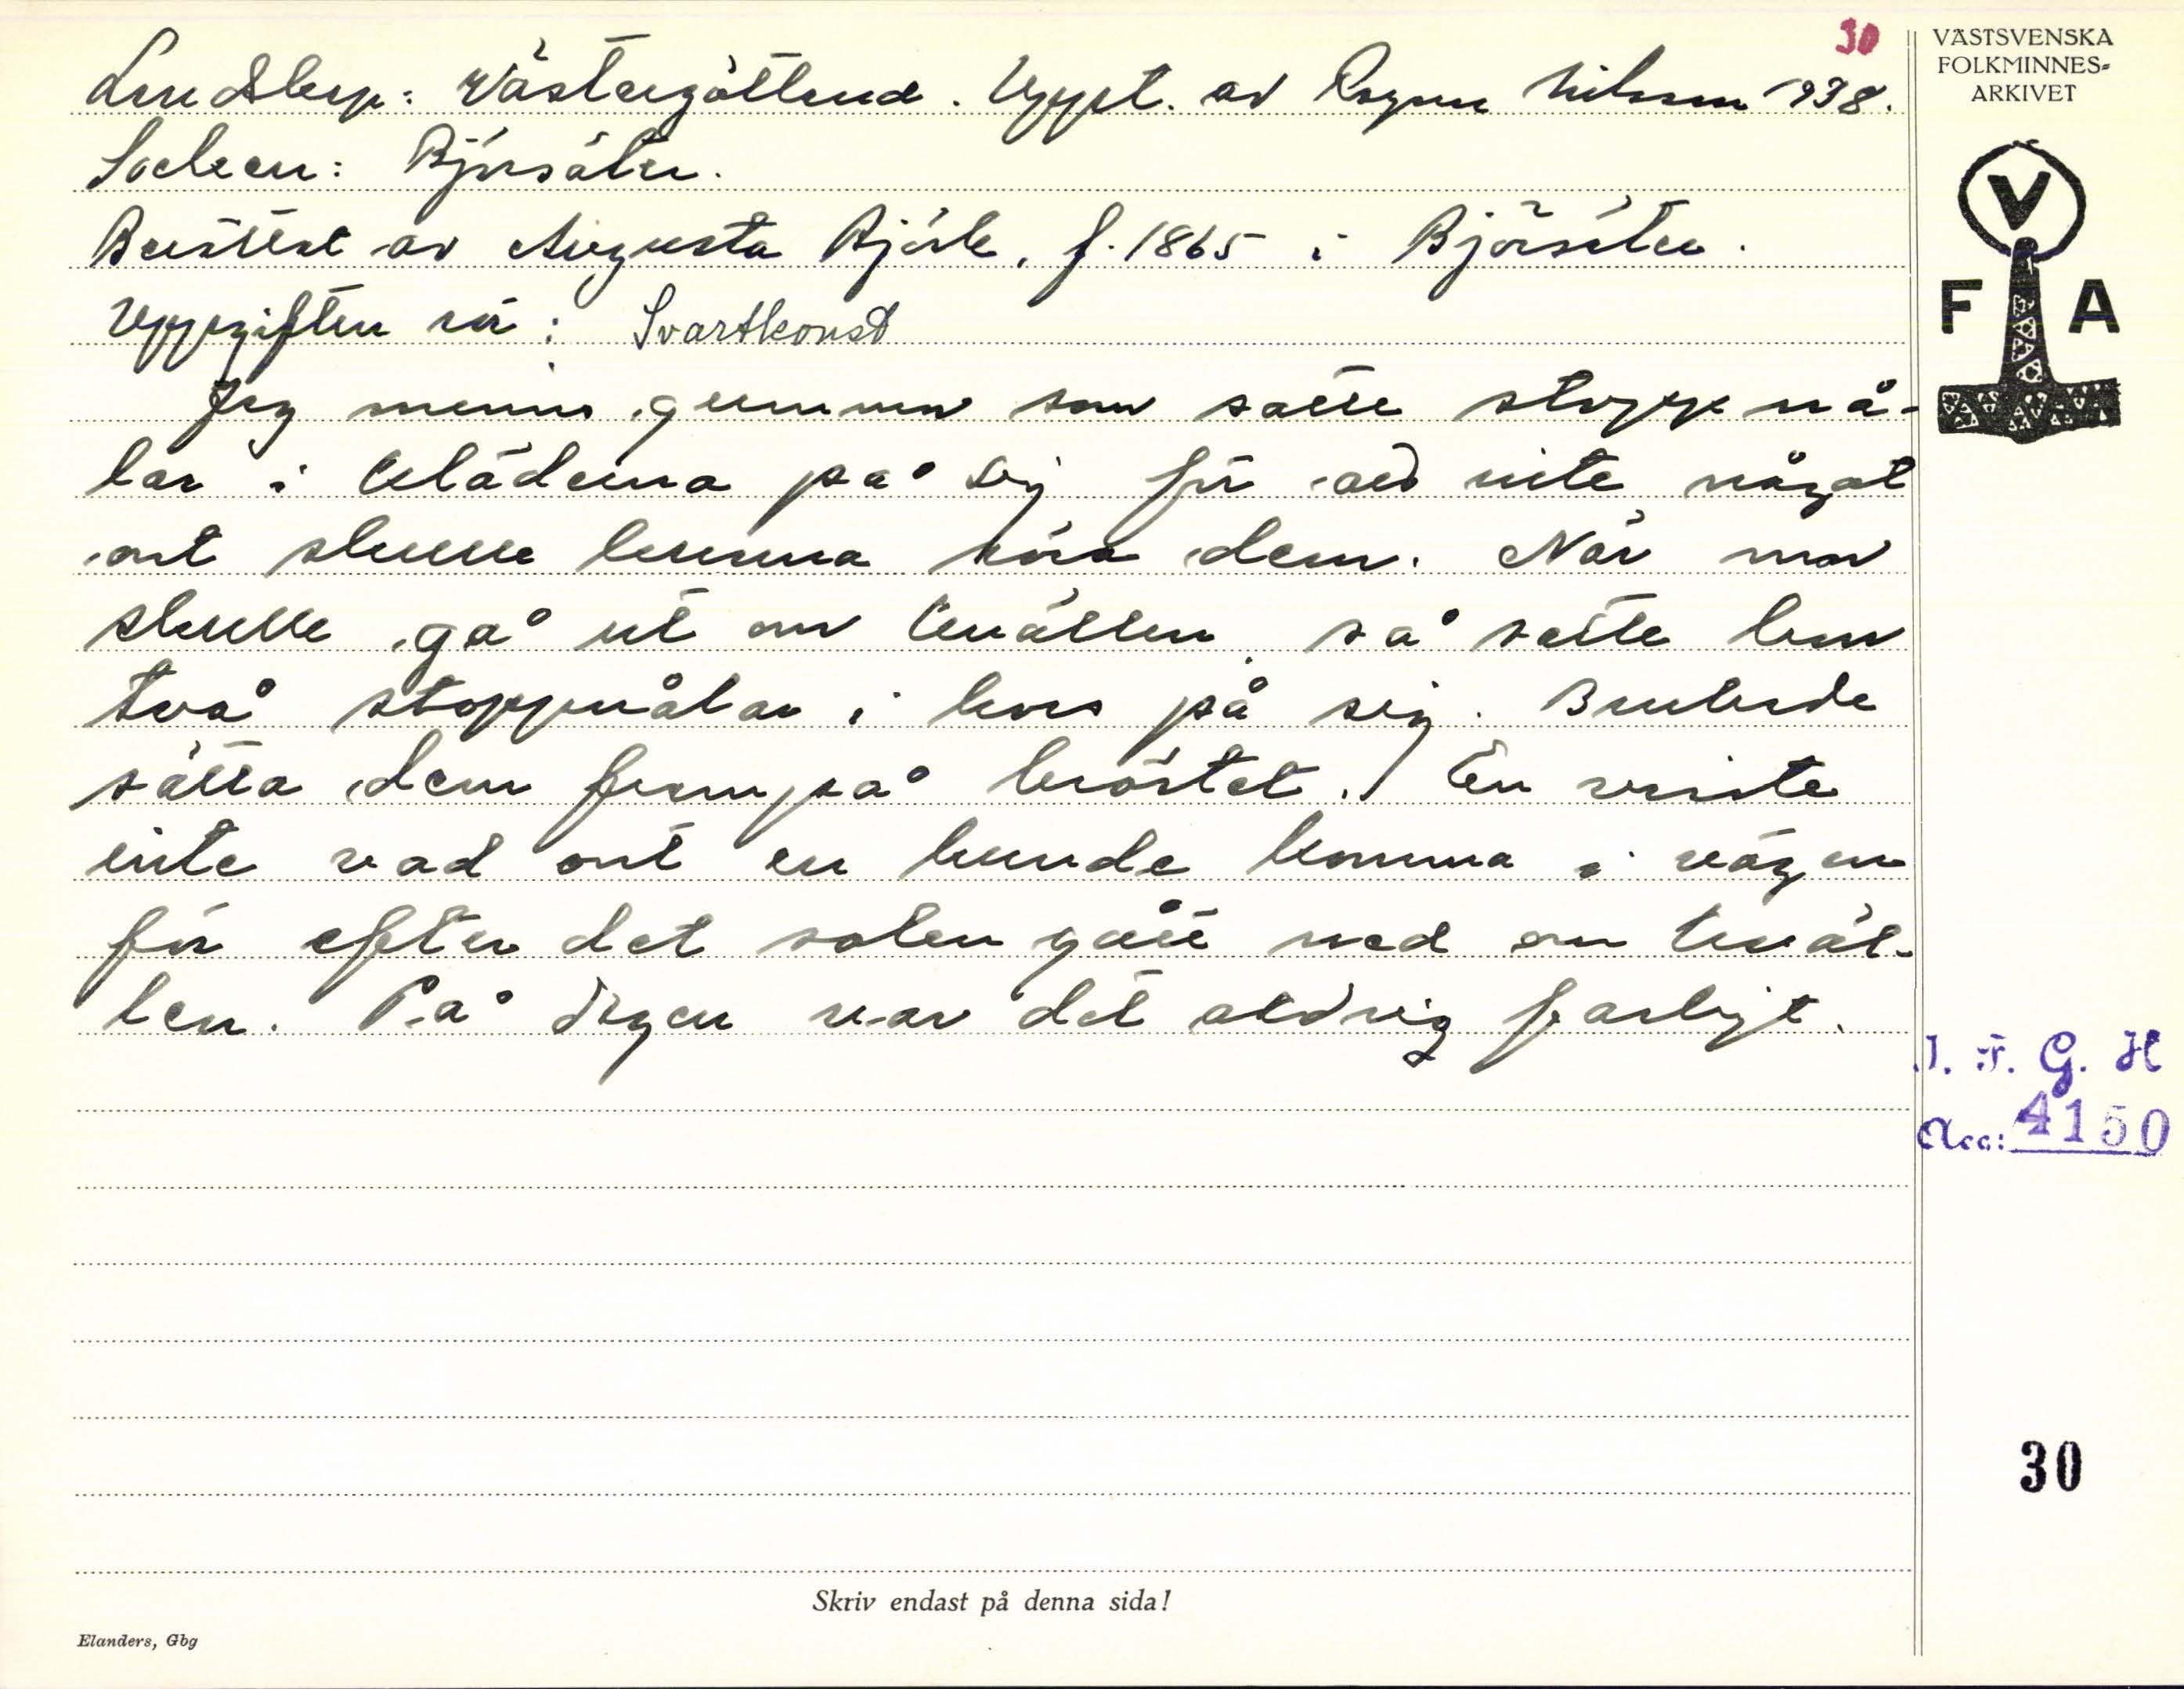 30
Landskap: Västergötland. Uppt. av Ragnar Nilsson 1938.
Socken: Björsäter.
Berättat av Augusta Björk, f. 1865 i Björsäter.
Uppgiften rör: Svartkonst
Jag minns gummor som satte stoppnå-
lar i kläderna på sig för att inte något
ont skulle kunna röra dem. När mor
skulle gå ut om kvällen, så satte hon
två stoppnålar i kors på sig. Brukade
sätta dem frampå bröstet. En visste
inte vad ont en kunde komma i vägen
för efter det solen gått ned om kväl-
len. På dagen var det aldrig farligt.
VÄSTSVENSKA
FOLKMINNES-
ARKIVET
V
F A
I. F. G. H
Acc: 4150
30
Skriv endast på denna sida!
Elanders, Gbg